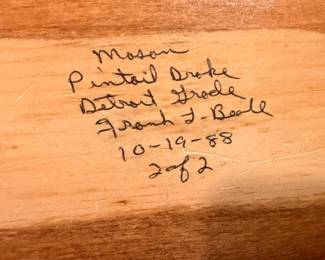 Mason
Pintail Drake
Detroit Grade
Frank L. Beall
10-19-88
2 of 2